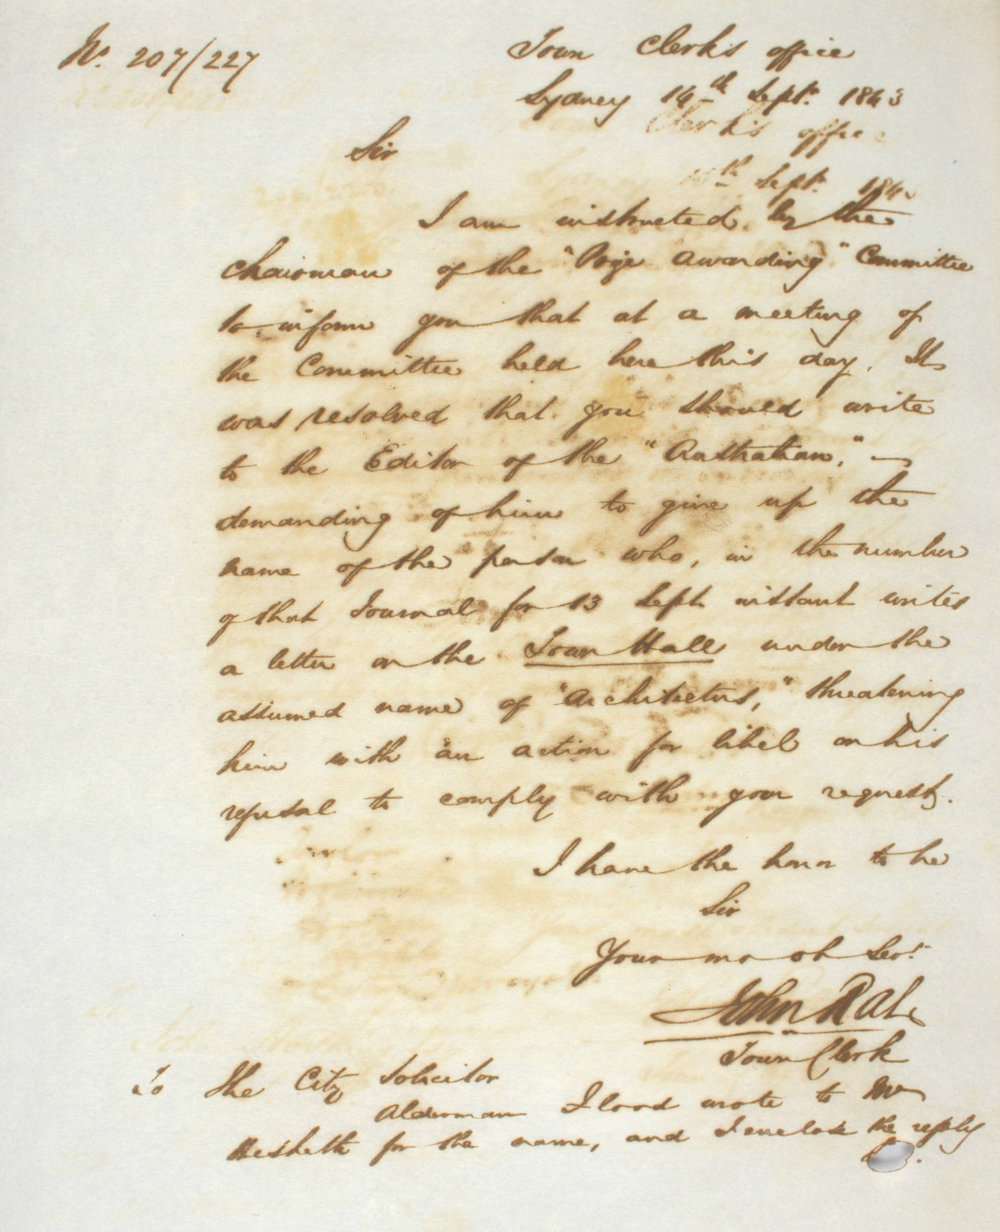 No. 207/227
Town Clerk's office
Sydney 14th Sept. 1843
Clerk's office
th Sept. 184
Sir
I am instructed by the
Chairman of the "Prize Awarding" Committee
to inform you that at a meeting of
the Committee held here this day, It
was resolved that you should write
to the Editor of the "Australian,"
demanding of him to give up the
name of the person who, in the number
of that Journal for 13 Sept. instant writes
a letter on the Town Hall under the
assumed name of "Architectus," threatening
him with an action for libel on his
refusal to comply with your request.
I have the honor to be
Sir
Your mo ob Servt.
John Rae
Town Clerk
To the City Solicitor
Alderman Flood wrote to Mr
Hesketh for the name, and I enclose the reply